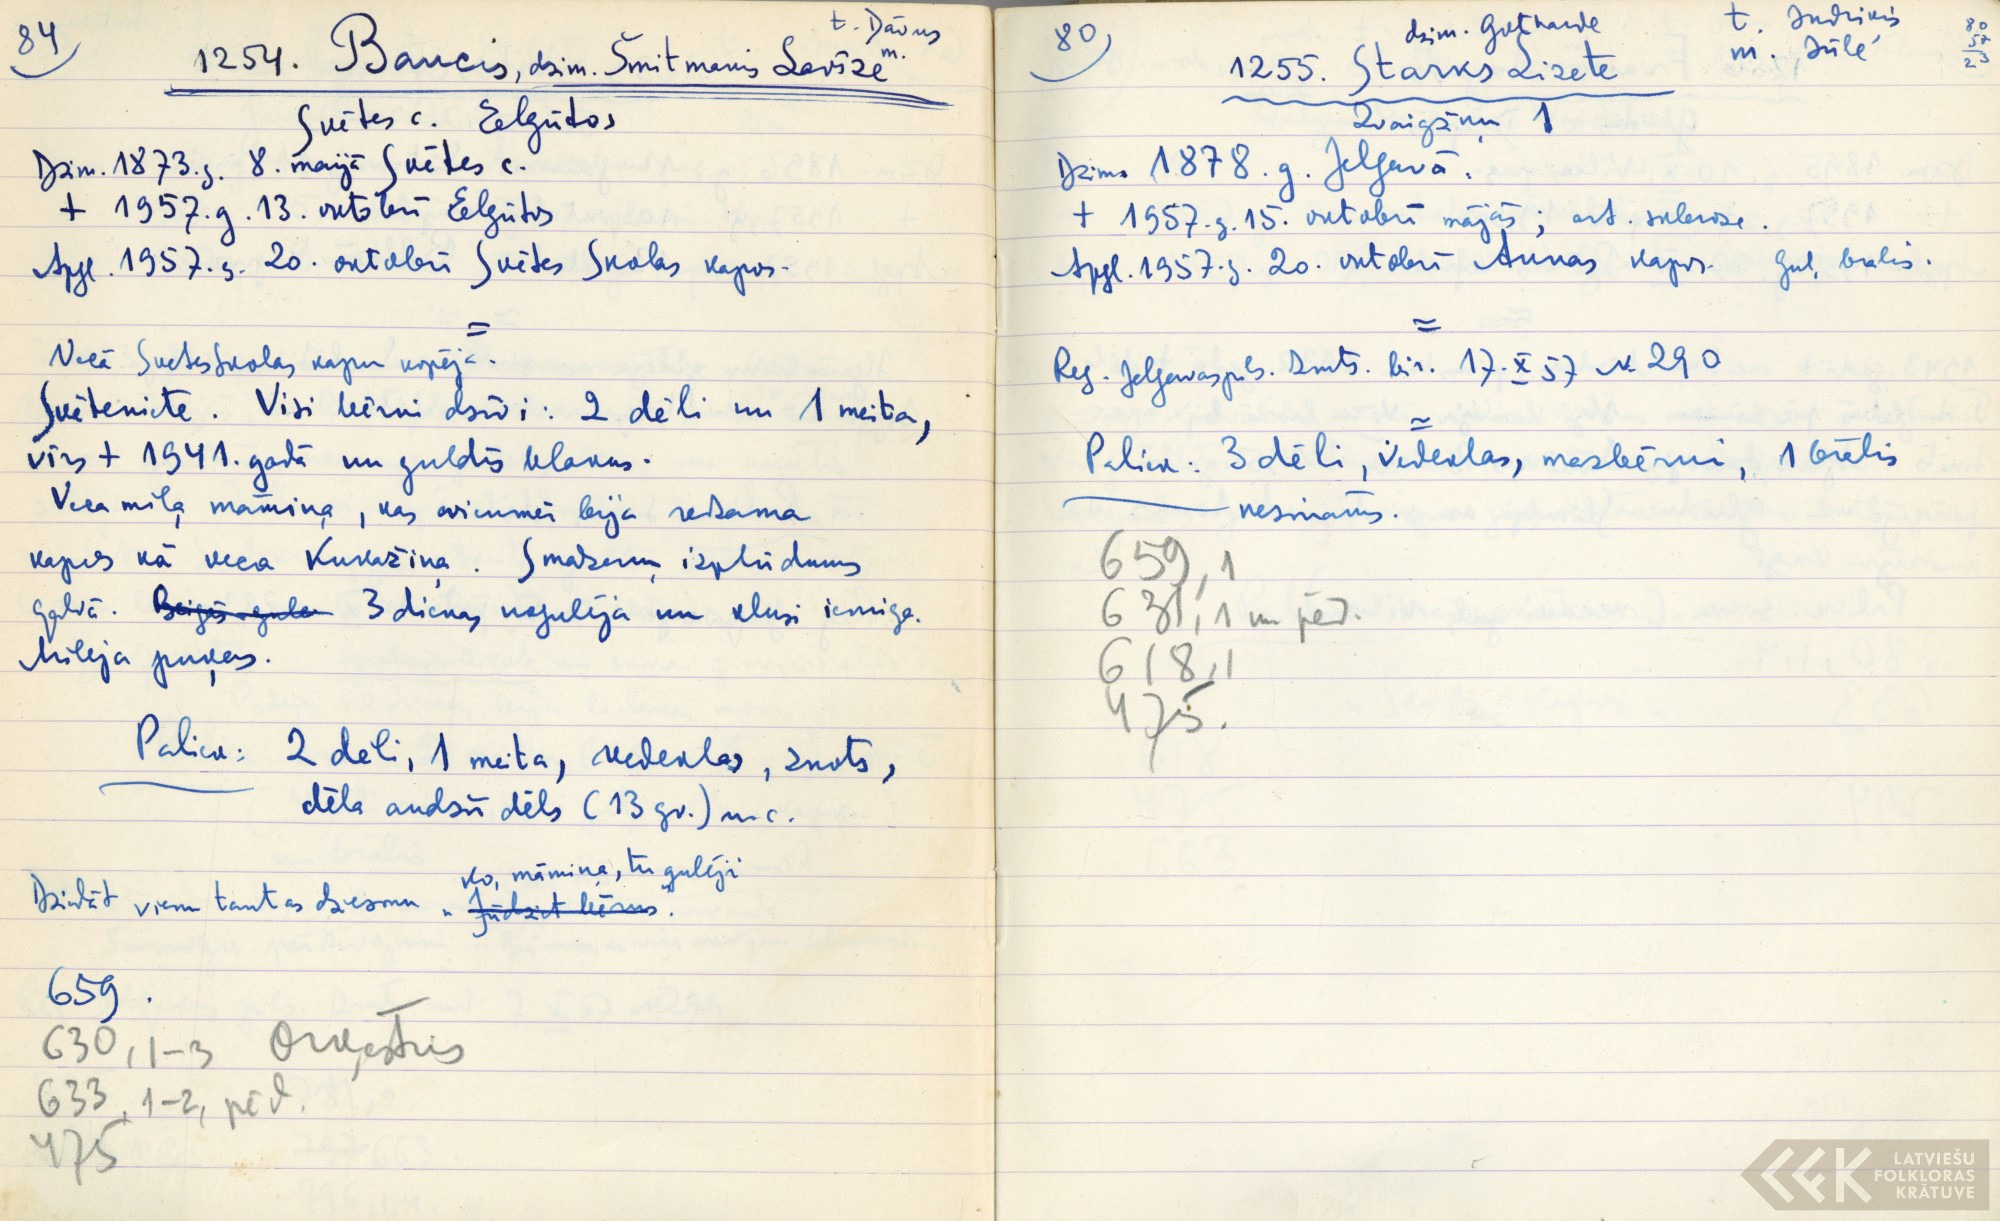 84
t. Dāvus
m.
1254. Baucis, dzim. Šmitmanis Lavīze
Svētes c. Eelgūtos
Dzim. 1873.g. 8. maijā Svētes c.
+ 1957.g. 13. oktobrī Eelgūtos
Apgl. 1957.g. 20. oktobrī Svētes Skolas kapos.
=
Vecā Svētes Skolas kapu kopēja.
Svēteniete. Visi bērni dzīvi: 2 dēli un 1 meita,
vīrs + 1941. gadā un guldīs blakus.
Veca mīļa māmiņa, kas arvienmēr bija redzama
kapos kā veca Kukažiņa. Smadzeņu izplūdums
galvā. 3 dienas nogulēja un klusi iemiga.
Mīlēja puķes.
Paliek: 2 dēli, 1 meita, vedeklas, znots,
dēla audžu dēls (13 gv.) u.c.
ko, māmiņa, tu gulēji
Dziedāt vienu tautas dziesmu „Jūdziet bērus".
659.
630, 1-3 Orķestris
633, 1-2, pēd.
475
80
dzim. Gotharde
t. Indriķis
m. Jūlē
80
57
23
1255. Starks Lizete
Zvaigžņu 1
Dzim. 1878. g. Jelgavā.
+ 1957.g. 15. oktobrī mājās; art. skleroze.
Apgl. 1957.g. 20. oktobrī Annas kapos. Gul. brālis.
=
Reg. Jelgavas pils. Dzmts. bir. 17. X 57 N. 290
=
Paliek: 3 dēli, vedeklas, mazbērni, 1 brālis
nezināms.
659,1
631, 1 un pēd.
618,1
475.
LATVIEŠU
FOLKLORAS
KRĀTUVE